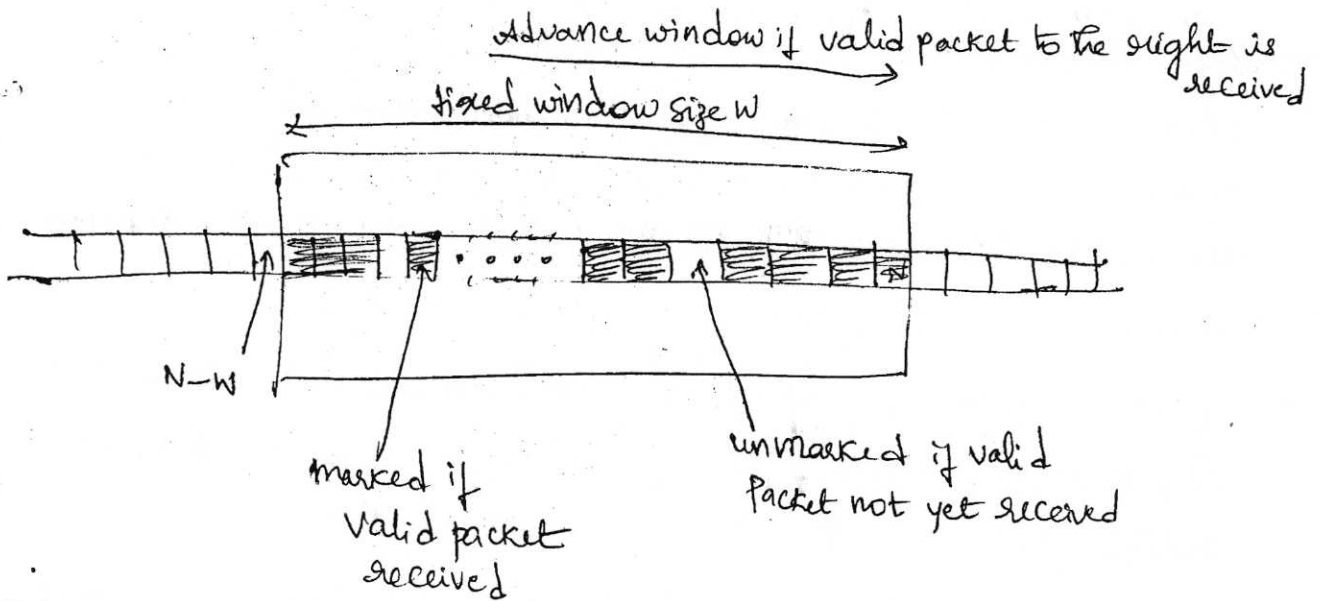 Advance window if valid packet to the right is
received
fixed window size W
N
N-W
marked if
valid packet
received
unmarked if valid
Packet not yet received